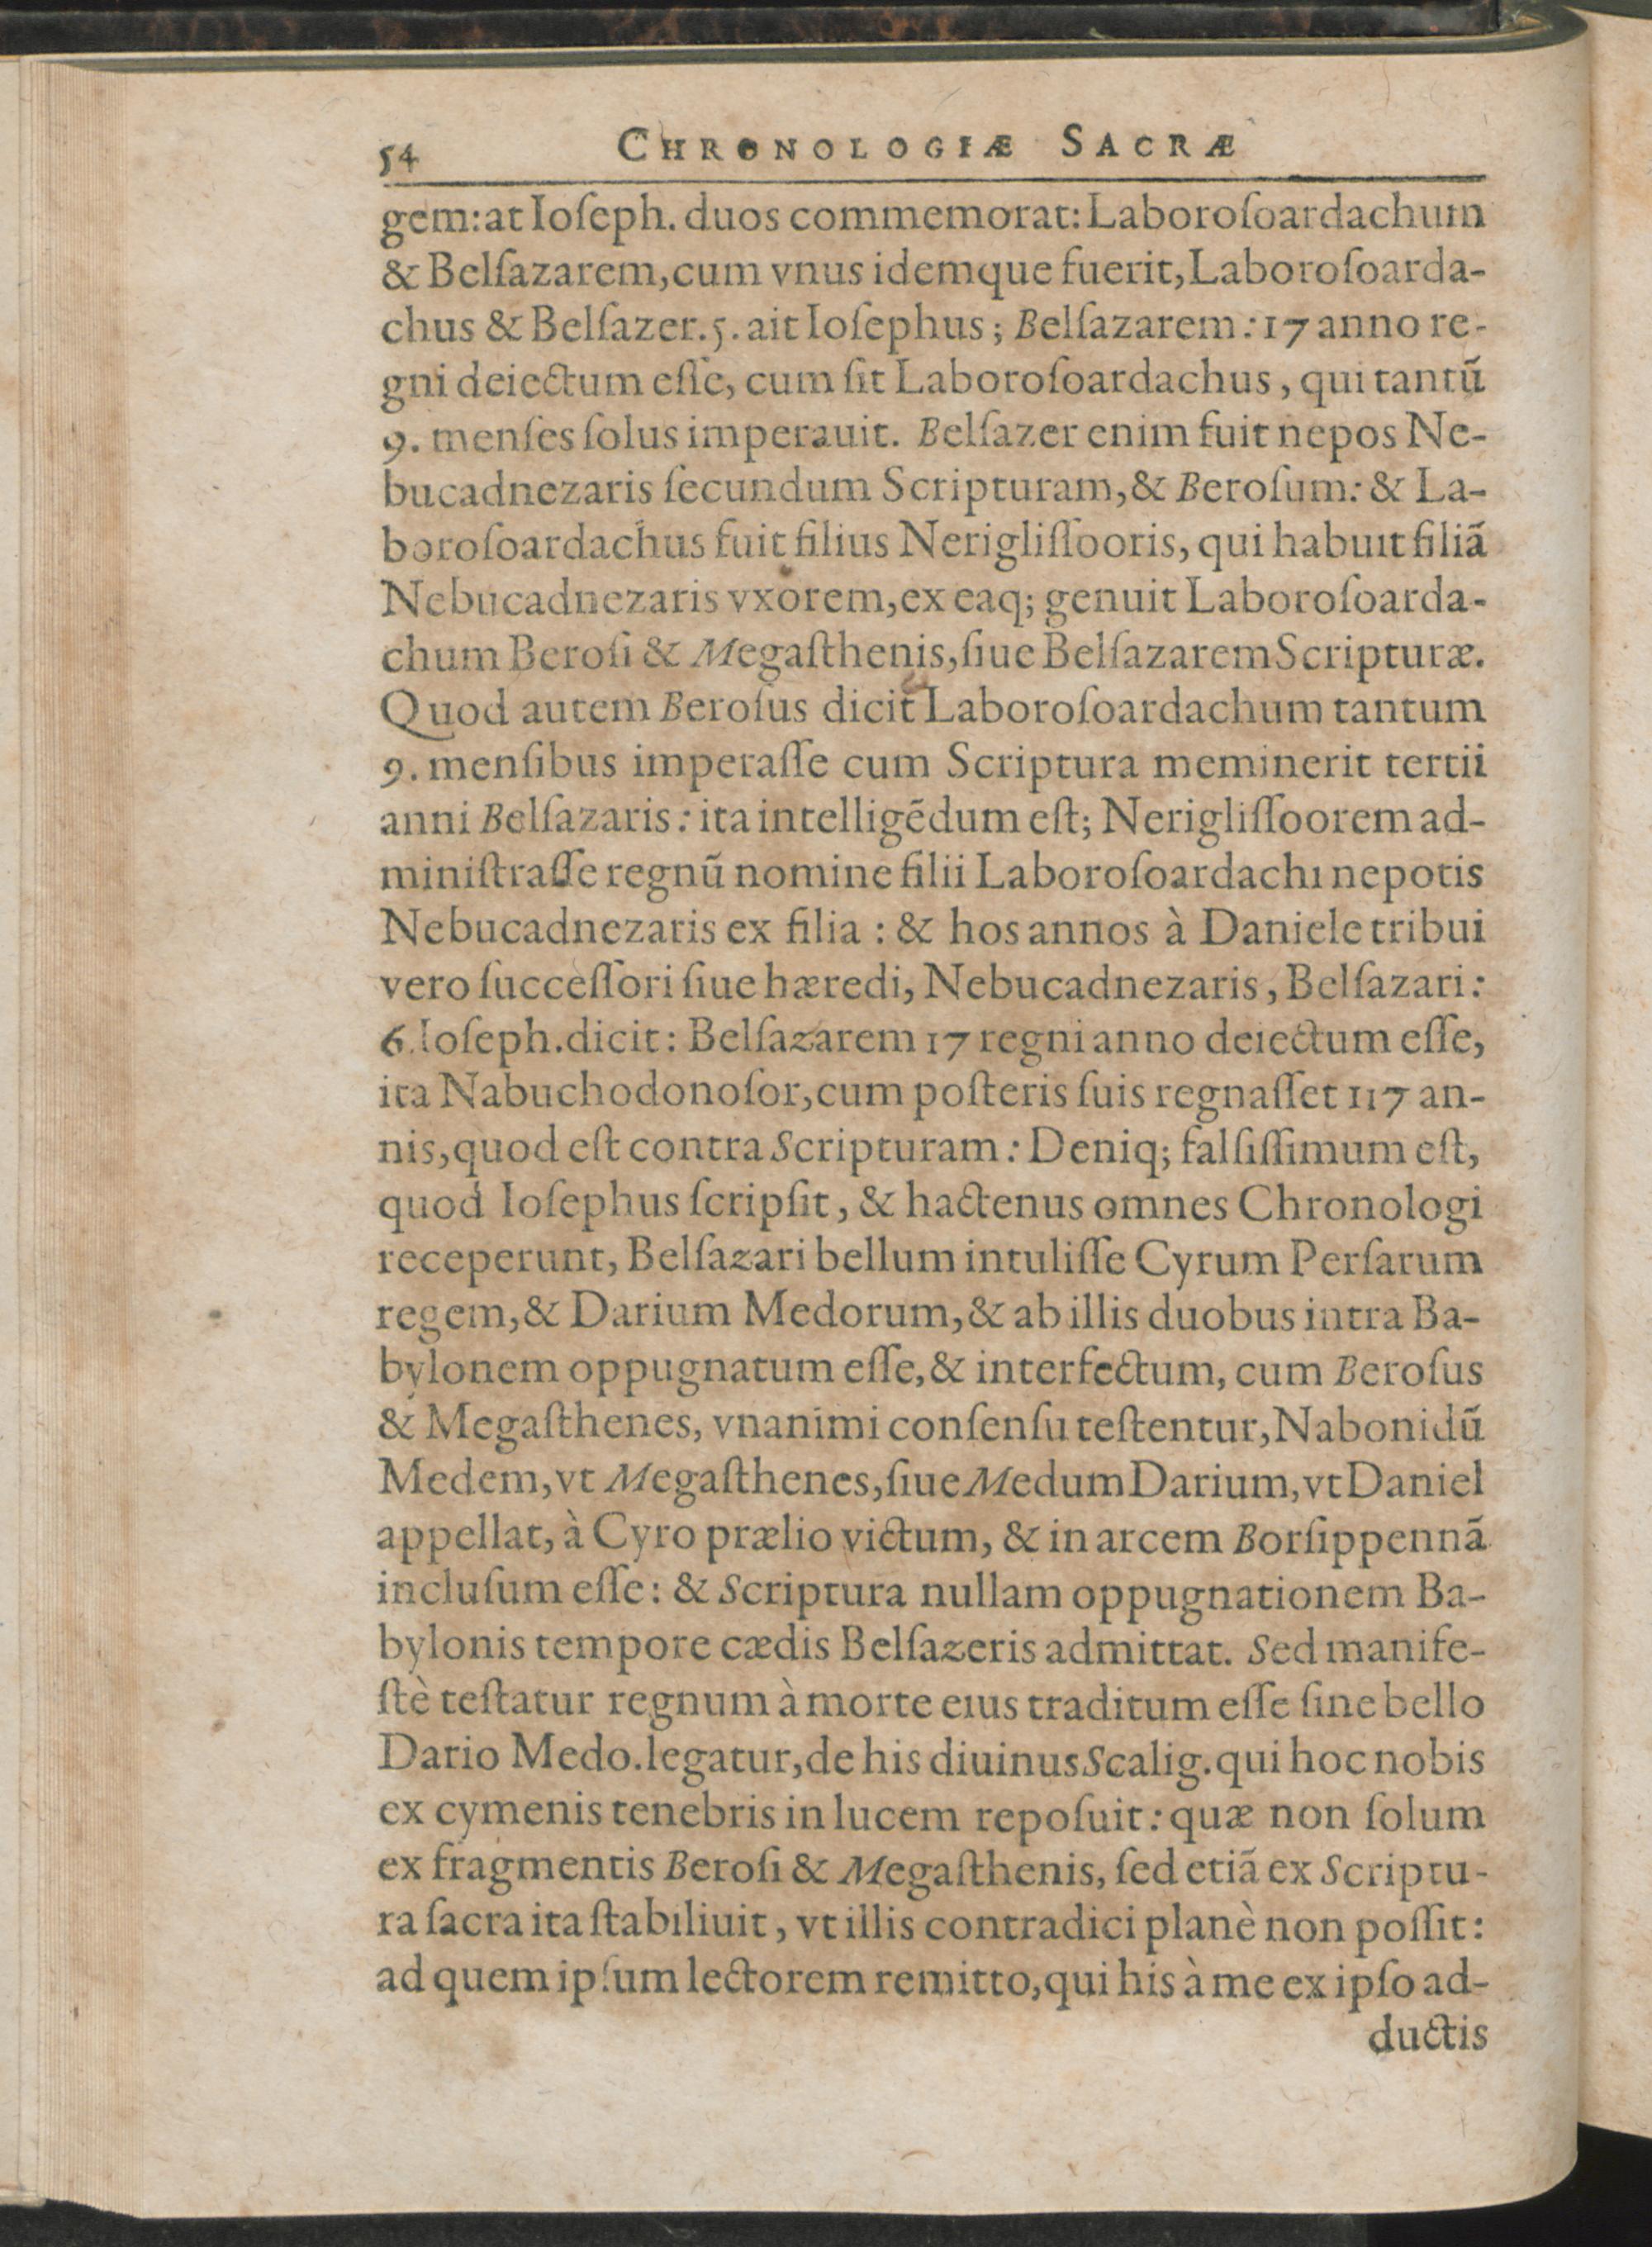 54 CHRONOLOGIÆ SACRÆ
gem: at Ioſeph. duos commemorat: Laboroſoardachum
& Belſazarem, cum vnus idemque fuerit, Laboroſoarda-
chus & Belſazer. 5. ait Ioſephus; Belſazarem: 17 anno re-
gni deiectum eſſe, cum ſit Laboroſoardachus, qui tantũ
9. menſes ſolus imperauit. Belſazer enim fuit nepos Ne-
bucadnezaris ſecundum Scripturam, & Beroſum: & La-
boroſoardachus fuit filius Nerigliſſooris, qui habuit filiã
Nebucadnezaris vxorem, ex eaq; genuit Laboroſoarda-
chum Beroſi & Megaſthenis, ſiue Belſazarem Scripturæ.
Quod autem Beroſus dicit Laboroſoardachum tantum
9. menſibus imperaſſe cum Scriptura meminerit tertii
anni Belſazaris: ita intelligẽdum eſt; Nerigliſſoorem ad-
miniſtraſſe regnũ nomine filii Laboroſoardachi nepotis
Nebucadnezaris ex filia: & hos annos à Daniele tribui
vero ſucceſſori ſiue hæredi, Nebucadnezaris, Belſazari:
6. Ioſeph. dicit: Belſazarem 17 regni anno deiectum eſſe,
ita Nabuchodonoſor, cum poſteris ſuis regnaſſet 117 an-
nis, quod eſt contra Scripturam: Deniq; falſiſſimum eſt,
quod Ioſephus ſcripſit, & hactenus omnes Chronologi
receperunt, Belſazari bellum intuliſſe Cyrum Perſarum
regem, & Darium Medorum, & ab illis duobus intra Ba-
bylonem oppugnatum eſſe, & interfectum, cum Beroſus
& Megaſthenes, vnanimi conſenſu teſtentur, Nabonidũ
Medem, vt Megaſthenes, ſiue Medum Darium, vt Daniel
appellat, à Cyro prælio victum, & in arcem Borſippennã
incluſum eſſe: & Scriptura nullam oppugnationem Ba-
bylonis tempore cædis Belſazeris admittat. Sed manife-
ſtè teſtatur regnum à morte eius traditum eſſe ſine bello
Dario Medo. legatur, de his diuinus Scalig. qui hoc nobis
ex cymenis tenebris in lucem repoſuit: quæ non ſolum
ex fragmentis Beroſi & Megaſthenis, ſed etiã ex Scriptu-
ra ſacra ita ſtabiliuit, vt illis contradici planè non poſſit:
ad quem ipſum lectorem remitto, qui his à me ex ipſo ad-
ductis